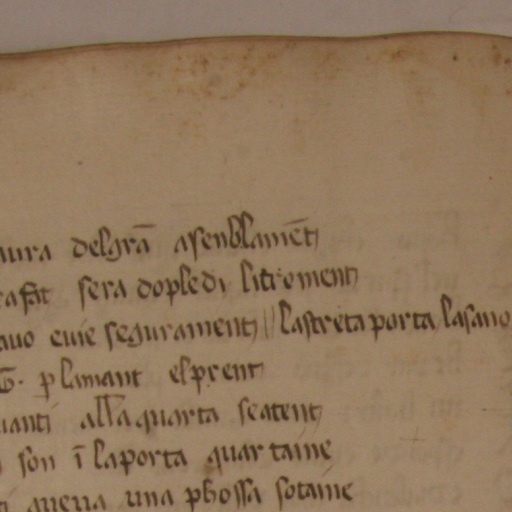 aura del grã asenblamẽt
fat sera dopledi litrement
auo euie segurament lastreta porta lasano
G. p lamant esprent
uanti alla quarta seatent
son ĩ la porta quartaine
auena una phossa sotaine